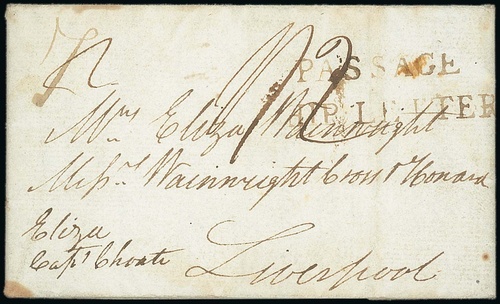 1/2
PASSAGE
OP LETTER
Mrs Eliza Wainwright
Messrs Wainwright Cross & Honard
Eliza
Capt Choate
Liverpool